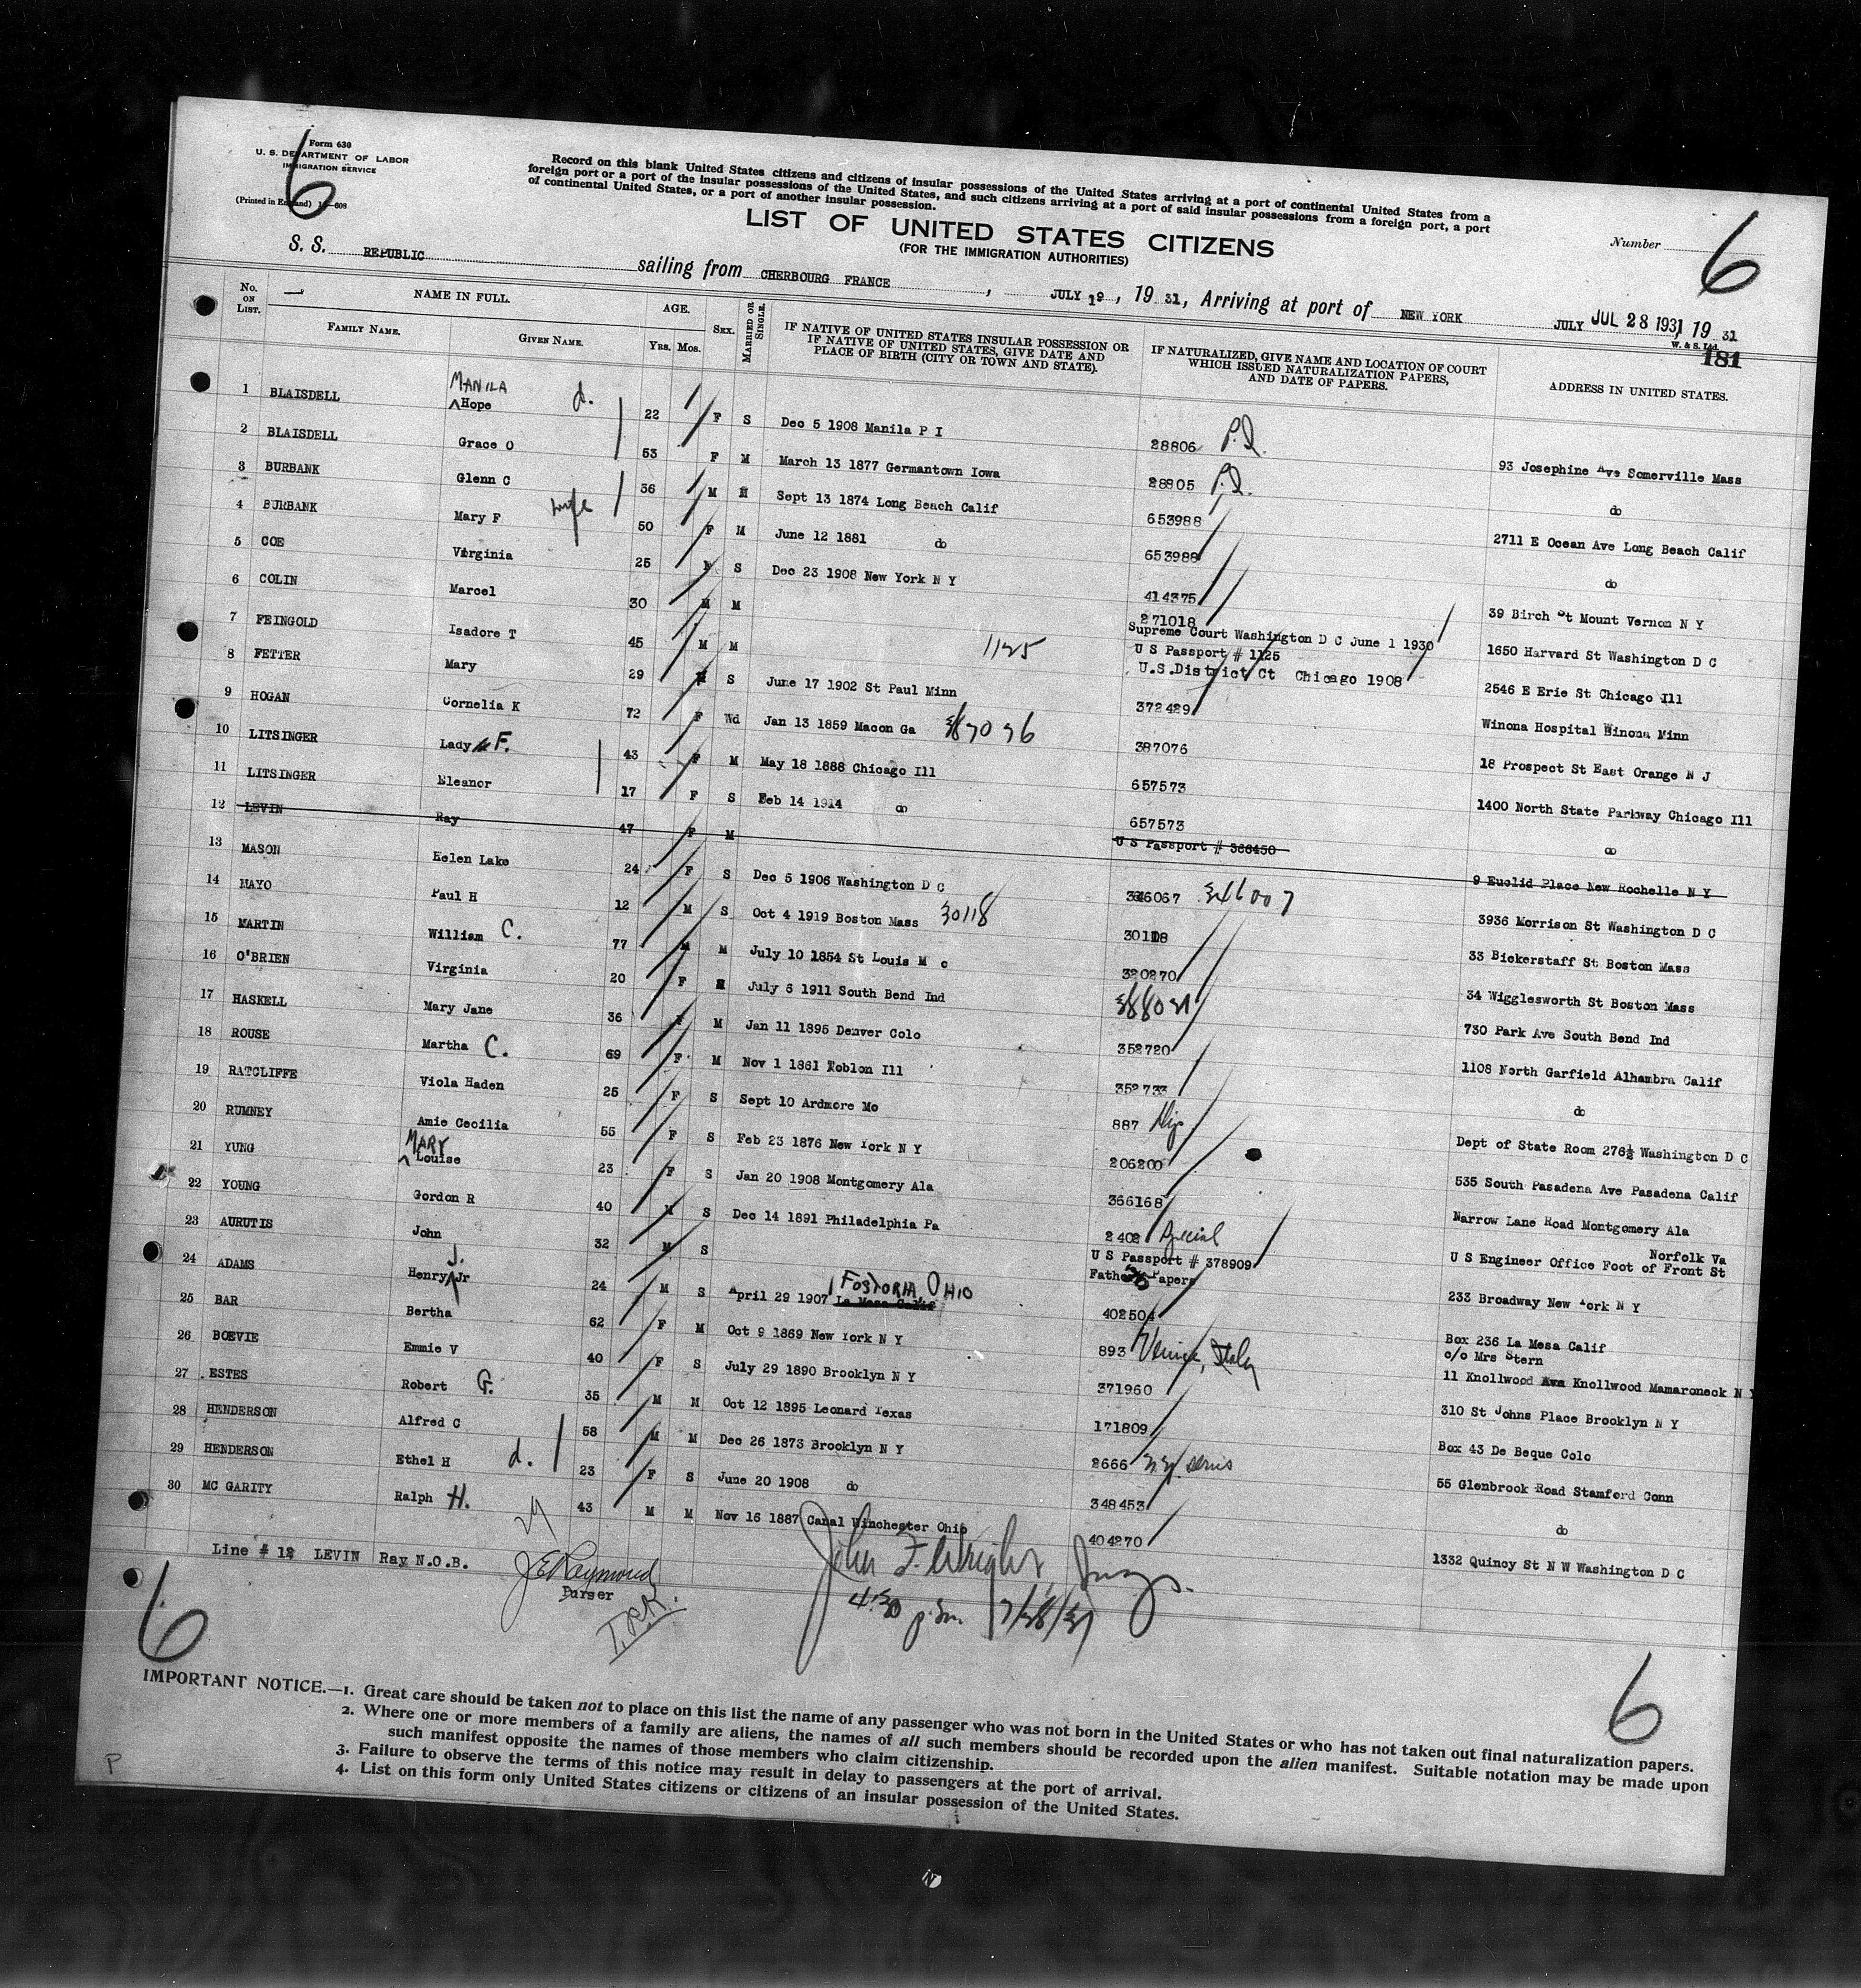 Form 630
U. S. DEPARTMENT OF LABOR
IMMIGRATION SERVICE
(Printed in England)
6
Record on this blank United States citizens and citizens of insular possessions of the United States arriving at a port of continental United States from a
foreign port or a port of the insular possessions of the United States, and such citizens arriving at a port of said insular possessions from a foreign port, a port
of continental United States, or a port of another insular possession.
LIST OF UNITED STATES CITIZENS
(FOR THE IMMIGRATION AUTHORITIES)
Number 6
S. S. REPUBLIC sailing from CHERBOURG FRANCE, JULY 19, 19 31, Arriving at port of NEW YORK JULY JUL 28 1931, 19 31
W. & S. Ltd.
181
No. ON LIST. NAME IN FULL. FAMILY NAME. GIVEN NAME. AGE. Yrs. Mos. SEX. MARRIED OR SINGLE. IF NATIVE OF UNITED STATES INSULAR POSSESSION OR IF NATIVE OF UNITED STATES, GIVE DATE AND PLACE OF BIRTH (CITY OR TOWN AND STATE). IF NATURALIZED, GIVE NAME AND LOCATION OF COURT WHICH ISSUED NATURALIZATION PAPERS, AND DATE OF PAPERS. ADDRESS IN UNITED STATES.
1 BLAISDELL MANILA Hope d. 22 F S Dec 5 1908 Manila P I 28806 P.I. 93 Josephine Ave Somerville Mass
2 BLAISDELL Grace O 53 F M March 13 1877 Germantown Iowa 28805 P.I. do
3 BURBANK Glenn C 56 M M Sept 13 1874 Long Beach Calif 653988 2711 E Ocean Ave Long Beach Calif
4 BURBANK Mary F wife 50 F M June 12 1881 do 653988 do
5 COE Virginia 25 S Dec 23 1908 New York N Y 414375 39 Birch St Mount Vernon N Y
6 COLIN Marcel 30 M M 271018 Supreme Court Washington D C June 1 1930 1650 Harvard St Washington D C
7 FEINGOLD Isadore T 45 M M 1125 U S Passport # 1125 U.S.District Ct Chicago 1908 2546 E Erie St Chicago Ill
8 FETTER Mary 29 S June 17 1902 St Paul Minn 372429 Winona Hospital Winona Minn
9 HOGAN Cornelia K 72 F Wd Jan 13 1859 Macon Ga 387076 387076 18 Prospect St East Orange N J
10 LITSINGER Lady F. 43 F M May 18 1888 Chicago Ill 657573 1400 North State Parkway Chicago Ill
11 LITSINGER Eleanor 17 F S Feb 14 1914 do 657573 do
12 LEVIN Ray 47 F M U S Passport # 366450 9 Euclid Place New Rochelle N Y
13 MASON Helen Lake 24 F S Dec 5 1906 Washington D C 346067 346007 3936 Morrison St Washington D C
14 MAYO Paul H 12 M S Oct 4 1919 Boston Mass 30118 30118 33 Bickerstaff St Boston Mass
15 MARTIN William C. 77 M M July 10 1854 St Louis M o 320270 34 Wigglesworth St Boston Mass
16 O'BRIEN Virginia 20 F July 6 1911 South Bend Ind 730 Park Ave South Bend Ind
17 HASKELL Mary Jane 36 F M Jan 11 1895 Denver Colo 352720 1108 North Garfield Alhambra Calif
18 ROUSE Martha C. 69 F M Nov 1 1861 Noblon Ill 352733 do
19 RATCLIFFE Viola Haden 25 F S Sept 10 Ardmore Mo 887 Dip. Dept of State Room 276½ Washington D C
20 RUMNEY Amie Cecilia 55 F S Feb 23 1876 New York N Y 206200 535 South Pasadena Ave Pasadena Calif
21 YUNG MARY Louise 23 F S Jan 20 1908 Montgomery Ala 366168 Narrow Lane Road Montgomery Ala
22 YOUNG Gordon R 40 M S Dec 14 1891 Philadelphia Pa 2402 Special U S Engineer Office Foot of Front St Norfolk Va
23 AURUTIS John 32 M S U S Passport # 378909 Father's Papers 233 Broadway New York N Y
24 ADAMS Henry J. Jr 24 M S April 29 1907 La Mesa Calif FOSTORIA OHIO 402504 Box 236 La Mesa Calif
25 BAR Bertha 62 F M Oct 9 1869 New York N Y 893 Venice, Italy c/o Mrs Stern 11 Knollwood Ave Knollwood Mamaroneck N Y
26 BOEVIE Emmie V 40 F S July 29 1890 Brooklyn N Y 371960 310 St Johns Place Brooklyn N Y
27 ESTES Robert G. 35 M M Oct 12 1895 Leonard Texas 171809 Box 43 De Beque Colo
28 HENDERSON Alfred C 58 M M Dec 26 1873 Brooklyn N Y 2666 N.Y. series 55 Glenbrook Road Stamford Conn
29 HENDERSON Ethel H d. 23 F S June 20 1908 do 348453 do
30 MC GARITY Ralph H. 43 M M Nov 16 1887 Canal Winchester Ohio 404270 1332 Quincy St N W Washington D C
Line # 12 LEVIN Ray N.O.B.
J E Raymond
Purser
John F. Wright, Insp.
4:30 p.m. 7/28/31
6
6
IMPORTANT NOTICE.—1. Great care should be taken not to place on this list the name of any passenger who was not born in the United States or who has not taken out final naturalization papers.
2. Where one or more members of a family are aliens, the names of all such members should be recorded upon the alien manifest. Suitable notation may be made upon
such manifest opposite the names of those members who claim citizenship.
3. Failure to observe the terms of this notice may result in delay to passengers at the port of arrival.
4. List on this form only United States citizens or citizens of an insular possession of the United States.
P